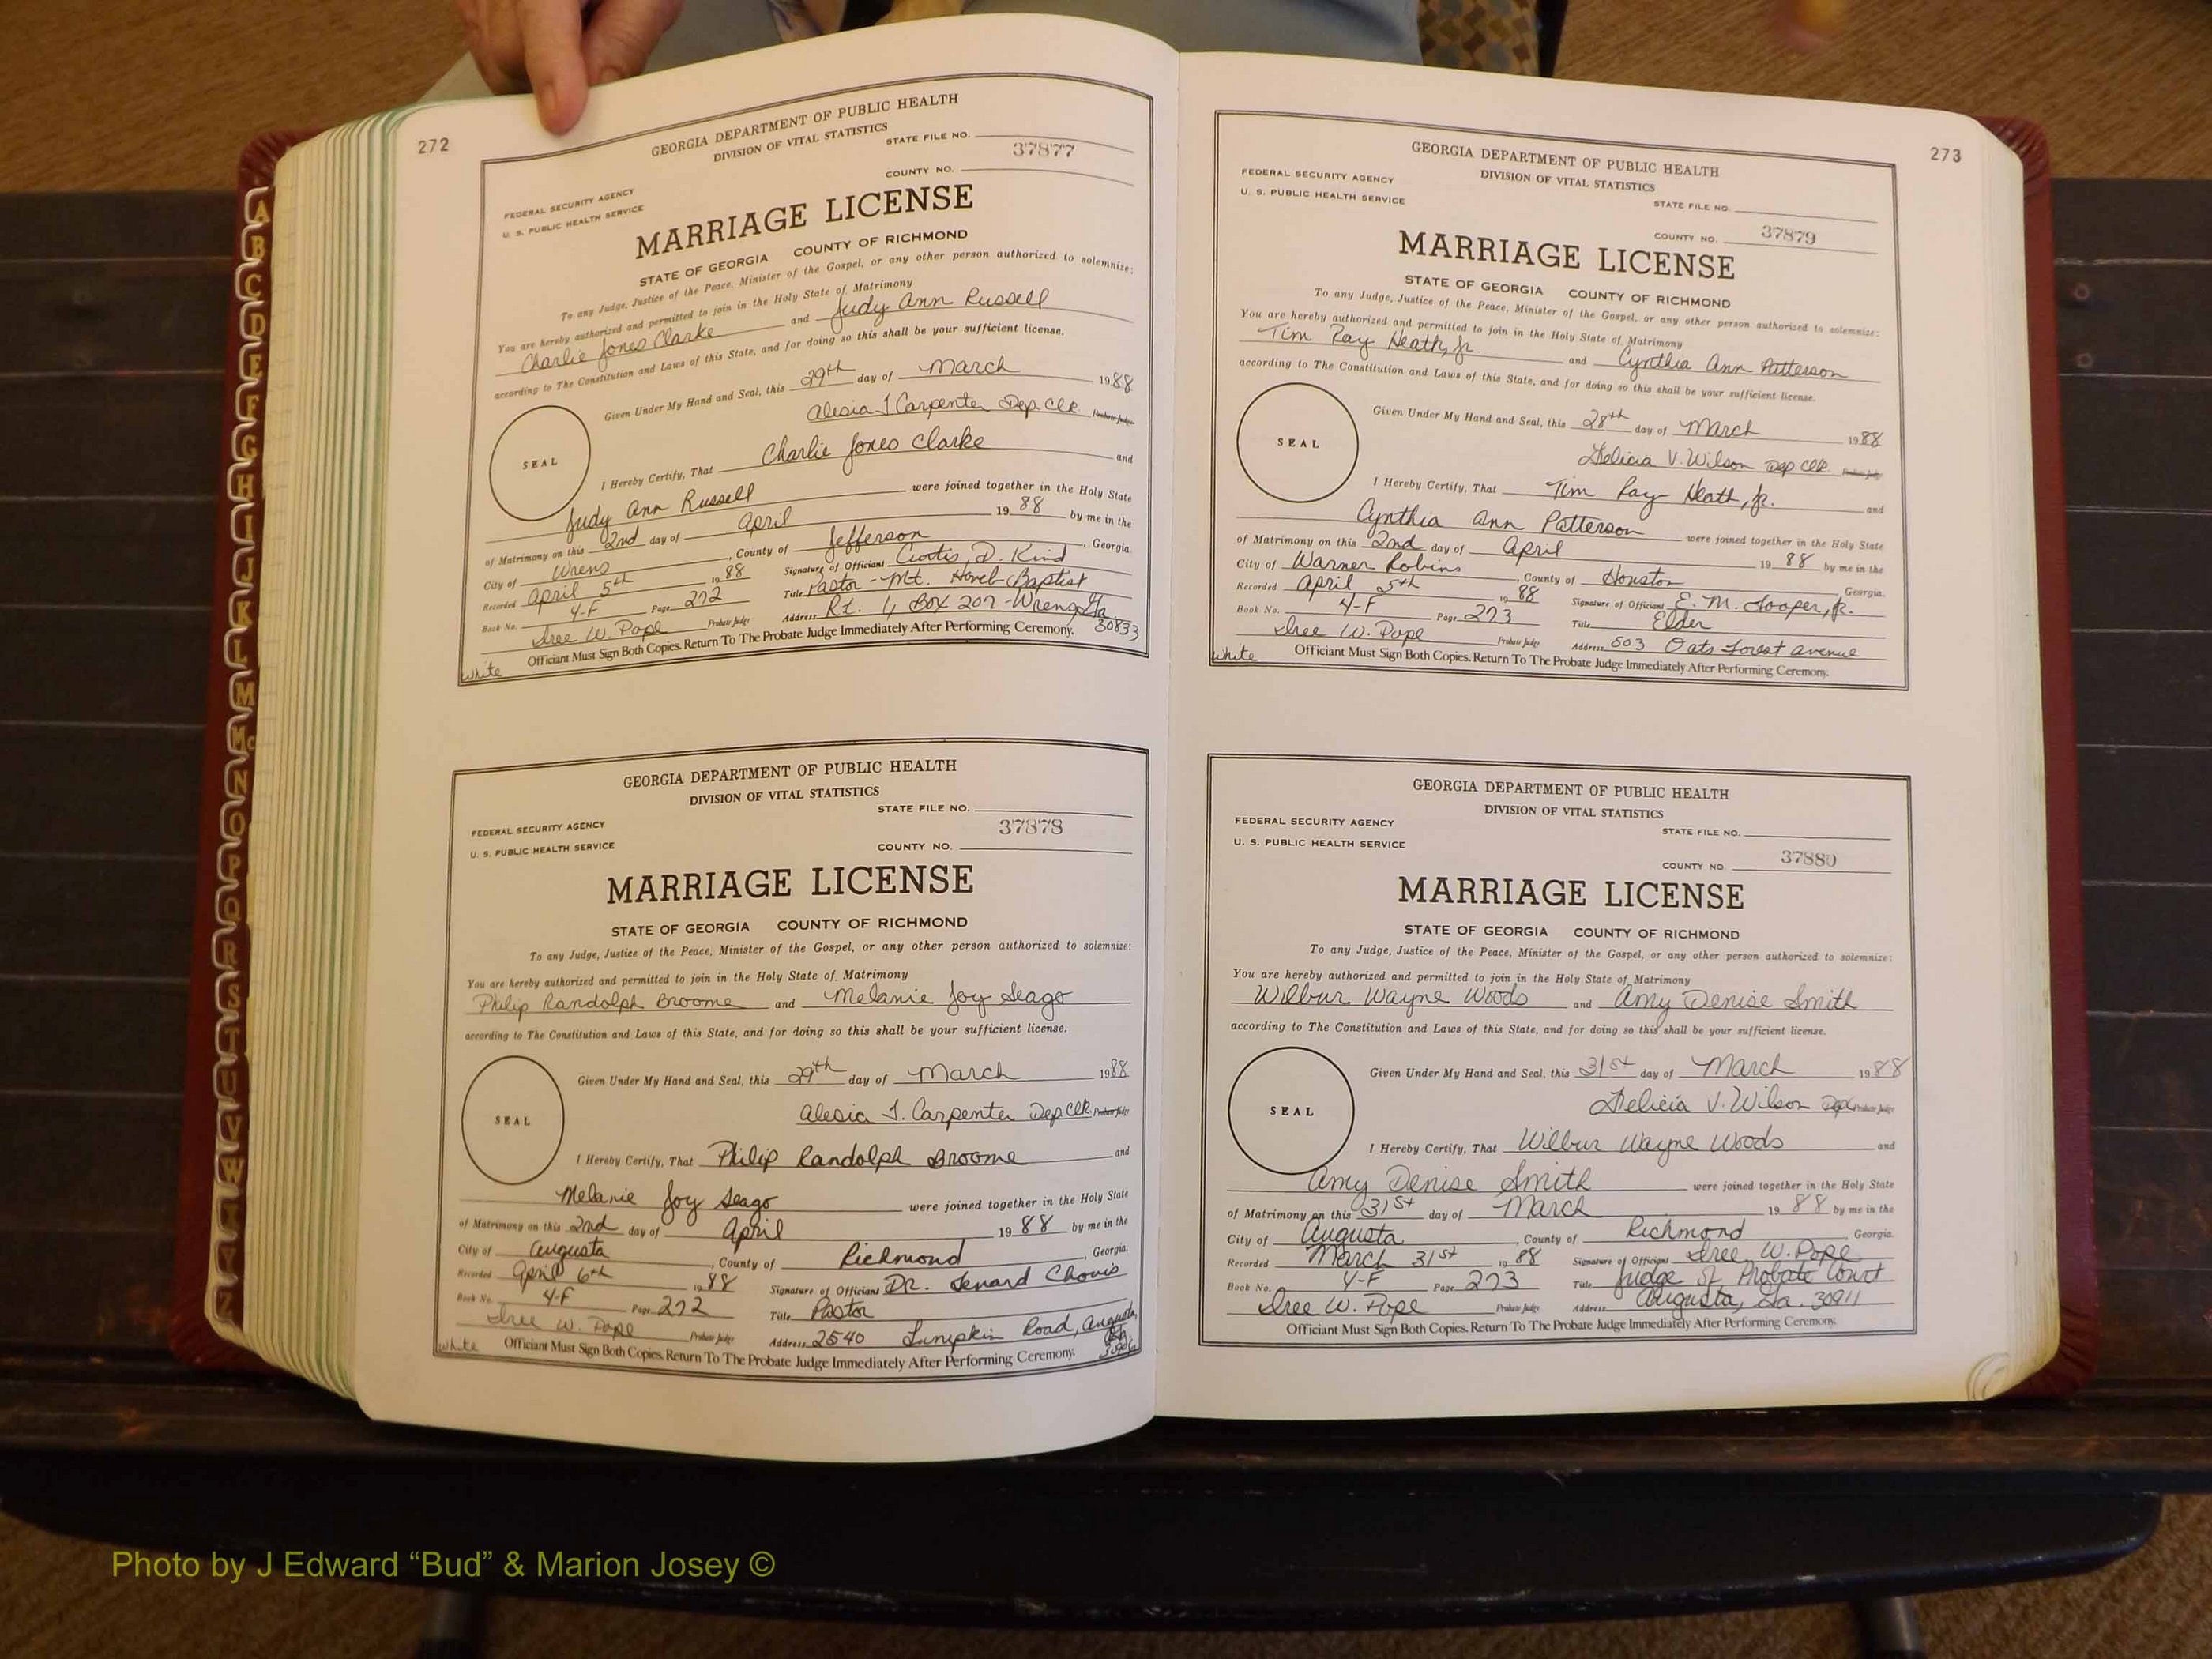 272
GEORGIA DEPARTMENT OF PUBLIC HEALTH
DIVISION OF VITAL STATISTICS
STATE FILE NO.
37877
FEDERAL SECURITY AGENCY
U. S. PUBLIC HEALTH SERVICE
COUNTY NO.
MARRIAGE LICENSE
STATE OF GEORGIA COUNTY OF RICHMOND
To any Judge, Justice of the Peace, Minister of the Gospel, or any other person authorized to solemnize:
You are hereby authorized and permitted to join in the Holy State of Matrimony
Charlie Jones Clarke and Judy Ann Russell
according to The Constitution and Laws of this State, and for doing so this shall be your sufficient license.
Given Under My Hand and Seal, this 29th day of March 1988
Alesia J. Carpenter Dep. Clk. Probate Judge
SEAL
I Hereby Certify, That Charlie Jones Clarke and
Judy Ann Russell were joined together in the Holy State
of Matrimony on this 2nd day of April 1988 by me in the
City of Wrens, County of Jefferson, Georgia.
Recorded April 5th 1988 Signature of Officiant Curtis D. Kind
Book No. 4-F Page 272 Title Pastor - Mt. Horeb Baptist
Iree W. Pope Probate Judge Address Rt. 1, Box 207 - Wrens, Ga. 30833
White Officiant Must Sign Both Copies. Return To The Probate Judge Immediately After Performing Ceremony.
GEORGIA DEPARTMENT OF PUBLIC HEALTH
DIVISION OF VITAL STATISTICS
STATE FILE NO.
37878
FEDERAL SECURITY AGENCY
U. S. PUBLIC HEALTH SERVICE
COUNTY NO.
MARRIAGE LICENSE
STATE OF GEORGIA COUNTY OF RICHMOND
To any Judge, Justice of the Peace, Minister of the Gospel, or any other person authorized to solemnize:
You are hereby authorized and permitted to join in the Holy State of Matrimony
Philip Randolph Broome and Melanie Joy Seago
according to The Constitution and Laws of this State, and for doing so this shall be your sufficient license.
Given Under My Hand and Seal, this 29th day of March 1988
Alesia J. Carpenter Dep Clk. Probate Judge
SEAL
I Hereby Certify, That Philip Randolph Broome and
Melanie Joy Seago were joined together in the Holy State
of Matrimony on this 2nd day of April 1988 by me in the
City of Augusta, County of Richmond, Georgia.
Recorded April 6th 1988 Signature of Officiant DR.
Book No. 4-F Page 272 Title Pastor
Iree W. Pope Probate Judge Address 2540 Lumpkin Road, Augusta,
White Officiant Must Sign Both Copies. Return To The Probate Judge Immediately After Performing Ceremony.
273
GEORGIA DEPARTMENT OF PUBLIC HEALTH
DIVISION OF VITAL STATISTICS
FEDERAL SECURITY AGENCY
U. S. PUBLIC HEALTH SERVICE
STATE FILE NO.
COUNTY NO. 37879
MARRIAGE LICENSE
STATE OF GEORGIA COUNTY OF RICHMOND
To any Judge, Justice of the Peace, Minister of the Gospel, or any other person authorized to solemnize:
You are hereby authorized and permitted to join in the Holy State of Matrimony
Tim Ray Heath, Jr. and Cynthia Ann Patterson
according to The Constitution and Laws of this State, and for doing so this shall be your sufficient license.
Given Under My Hand and Seal, this 28th day of March 1988
Felicia V. Wilson Dep. Clk. Probate Judge
SEAL
I Hereby Certify, That Tim Ray Heath, Jr. and
Cynthia Ann Patterson were joined together in the Holy State
of Matrimony on this 2nd day of April 1988 by me in the
City of Warner Robins, County of Houston Georgia.
Recorded April 5th 1988 Signature of Officiant E. M. Hooper, Jr.
Book No. 4-F Page 273 Title Elder
Iree W. Pope Probate Judge Address 503 Oats Forest Avenue
White Officiant Must Sign Both Copies. Return To The Probate Judge Immediately After Performing Ceremony.
GEORGIA DEPARTMENT OF PUBLIC HEALTH
DIVISION OF VITAL STATISTICS
FEDERAL SECURITY AGENCY
U. S. PUBLIC HEALTH SERVICE
STATE FILE NO.
COUNTY NO. 37880
MARRIAGE LICENSE
STATE OF GEORGIA COUNTY OF RICHMOND
To any Judge, Justice of the Peace, Minister of the Gospel, or any other person authorized to solemnize:
You are hereby authorized and permitted to join in the Holy State of Matrimony
Wilbur Wayne Woods and Amy Denise Smith
according to The Constitution and Laws of this State, and for doing so this shall be your sufficient license.
Given Under My Hand and Seal, this 31st day of March 1988
Felicia V. Wilson Probate Judge
SEAL
I Hereby Certify, That Wilbur Wayne Woods and
Amy Denise Smith were joined together in the Holy State
of Matrimony on this 31st day of March 1988 by me in the
City of Augusta, County of Richmond Georgia.
Recorded March 31st 1988 Signature of Officiant Iree W. Pope
Book No. 4-F Page 273 Title Judge of Probate Court
Iree W. Pope Probate Judge Address Augusta, Ga. 30911
Officiant Must Sign Both Copies. Return To The Probate Judge Immediately After Performing Ceremony.
A
B
C
D
E
F
G
H
I
J
K
L
M
Mc
N
O
P
Q
R
S
T
U
V
W
X
Y
Z
Photo by J Edward “Bud” & Marion Josey ©